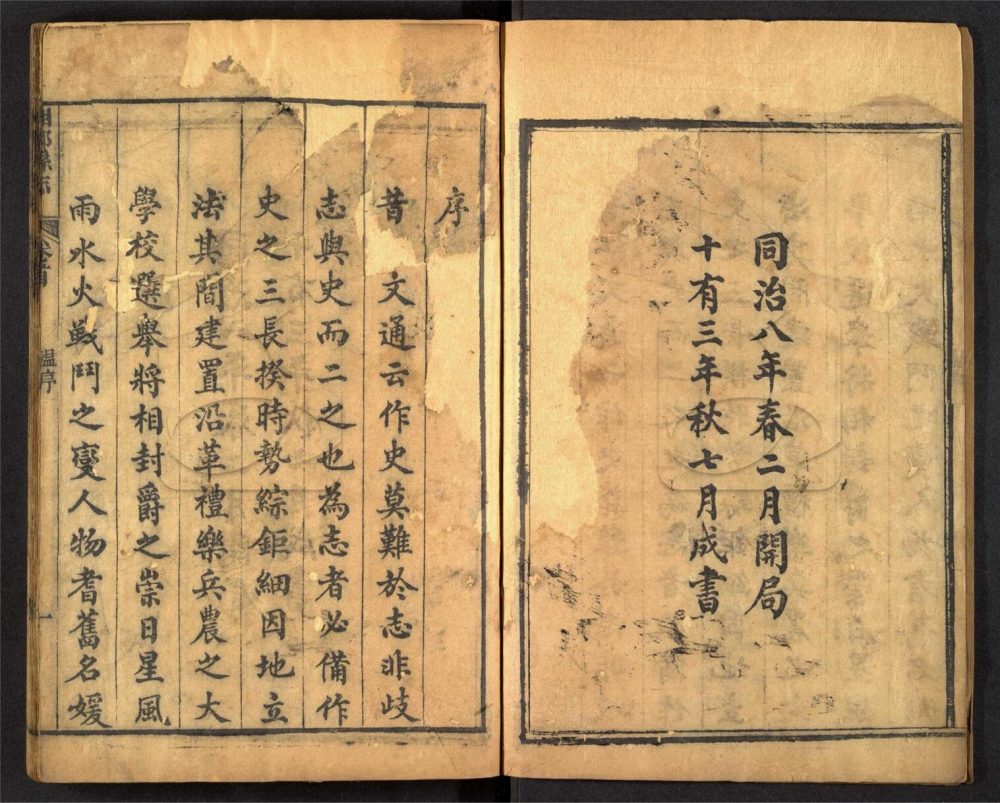 同治八年春二月開局
十有三年秋七月成書
序
昔 文通云作史莫難於志非歧
志與史而二之也為志者必備作
史之三長揆時勢綜鉅細因地立
法其間建置沿革禮樂兵農之大
學校選舉將相封爵之崇日星風
雨水火戰鬥之變人物耆舊名媛
縣志
卷首
溫序
一